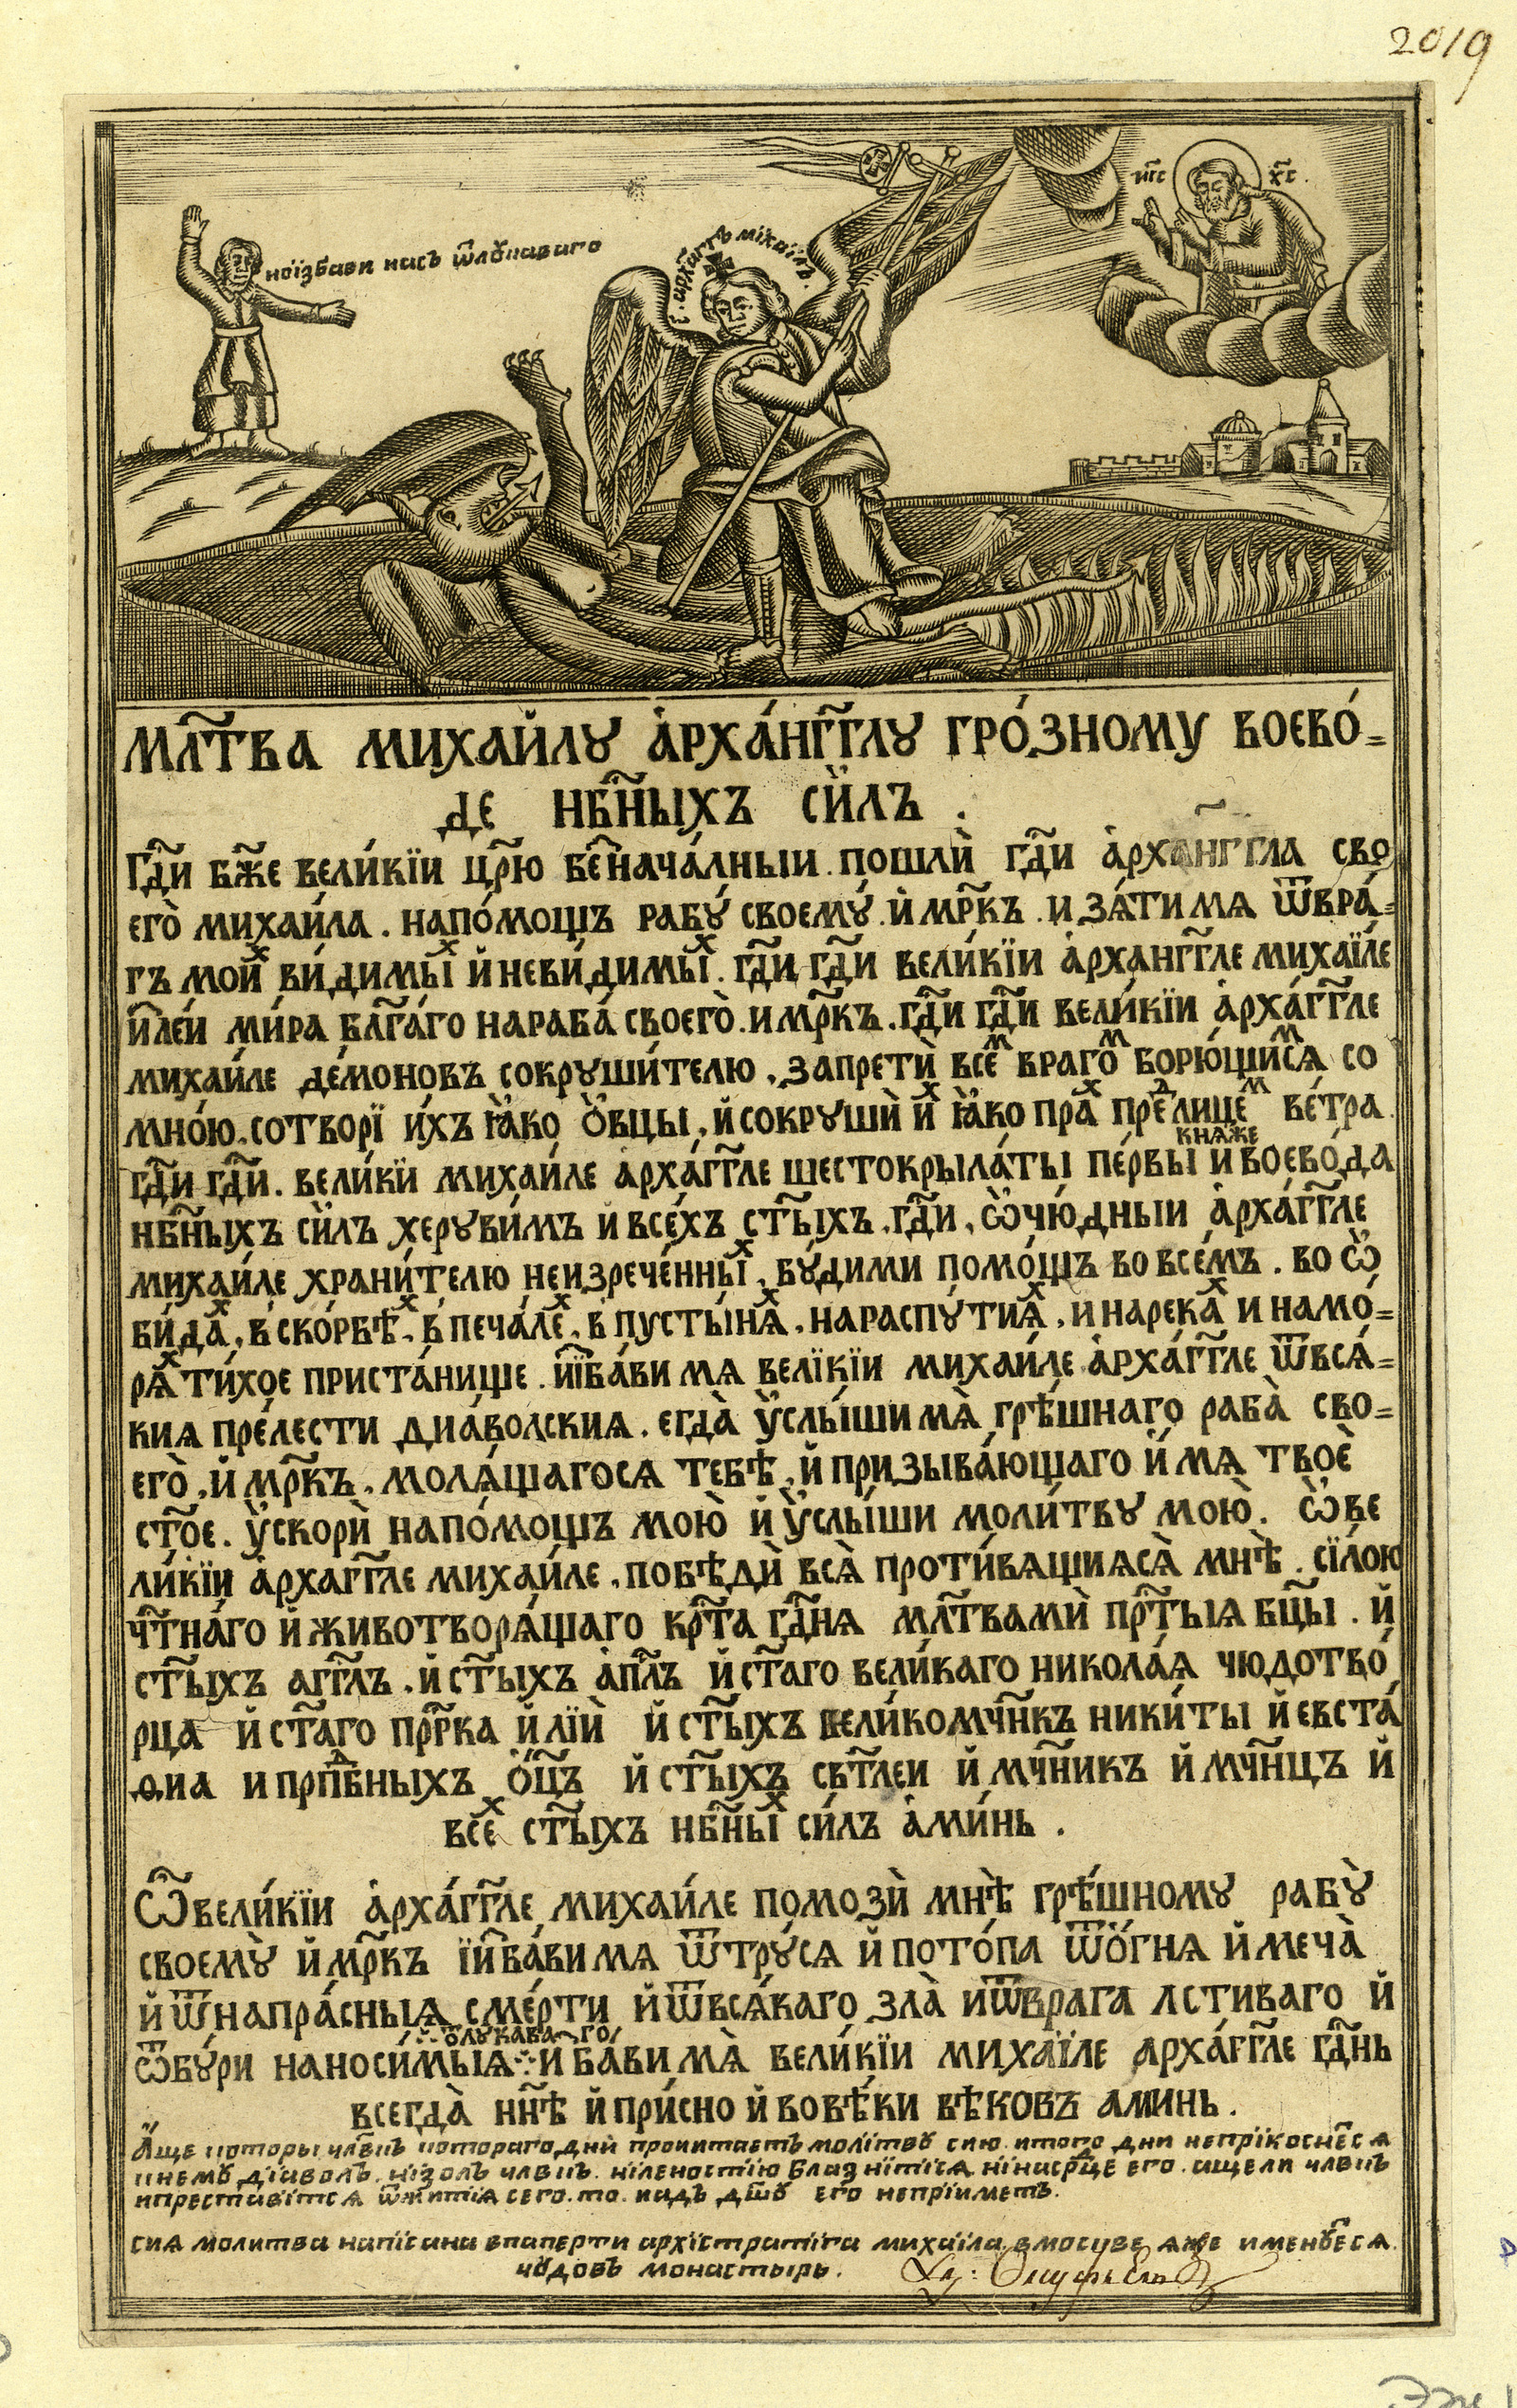 2019
И҃СС Х҃С.
но ізбави насъ ѿ лꙋкаваго
с. арха҃гглъ міхаілъ.
МЛ҃ТВА МИХАЙЛꙊ А҆РХА́НГ҃ГЛꙊ ГРО́ЗНОМУ ВОЕВО́=
ДЕ НБ҃НЫХЪ СИ҆ЛЪ .
Гд҃и бж҃е вели́кїи цр҃ю без̾нача́лныи . пошлѝ гд҃и а҆рханг҃гла сво
его̀ михаи́ла . напо́мощъ рабꙋ́ своемꙋ́ . и҆мр҃къ . и зѧ́ти мѧ ѿвра́=
гъ мои̾ ви́димыї и҆неви́димыї . гд҃и гд҃и вели́кїи а҆рханг҃гле михаїле
и҆ле́и ми́ра благ҃а́го нараба́ своего̀ . имр҃къ . гд҃и гд҃и вели́кїи а҆рха́гг҃ле
михаи́ле де́моновъ сокрꙋши́телю . запретѝ всеⷨ враго́ⷨ борю́щиⷨсѧ со
мно́ю . сотворї и́хъ ꙗ҆ко ѻ҆вцы , и҆сокрꙋшѝ и҆ⷯ ꙗ҆ко праⷯ преⷣ лицеⷨ ве́тра .
гд҃и гд҃и . вели́кїи михаи́ле а҆рха́гг҃ле шестокрыла́ты пе́рвы кнѧже и воево́да
нб҃ныхъ си҆лъ херꙋви́мъ и҆ все́хъ ст҃ыхъ . гд҃и , ѽчю́дныи а҆рха́гг҃ле
михаи́ле храни́телю неизрече́нныⷯї . бꙋ́дими помо́щъ во все́мъ . во ѽ
би́даⷯ , в ско́рбѣⷯ , в печа́леⷯ , в пусты́нѧⷯ . нараспꙋ́тиѧⷯ , и нарекаⷯ и намо́=
рѧⷯ ти́хое приста́нище . и҆ї҃ба́ви мѧ велїкїи михаи́ле а҆рха́гг҃ле ѿвсѧ́=
киѧ пре́лести диа́волскиѧ . егда̀ ᲂу҆слы́ши мѧ̀ грѣ́шнаго раба̀ сво=
его̀ , и҆мр҃къ . молѧ́щагосѧ тебѣ , и҆ призыва́ющаго и҆мѧ твоѐ
ст҃ое . ᲂу҆скорѝ напо́мощъ мою̀ и҆ ᲂу҆слы́ши моли́твꙋ мою̀ . ѽве
ли́кїи а҆рхагг҃ле михаи́ле , побѣдѝ всѧ̀ проти́вѧщиѧсѧ̀ мнѣ . сїлою
чт҃на́го и҆ животворѧ́щаго кр҃та гд҃нѧ мл҃твамѝ пр҃тыѧ бц҃ы . и҆
ст҃ыхъ агг҃лъ . и҆ ст҃ыхъ а҆пл҃ъ и҆ ст҃аго вели́каго никола́ѧ чюдотво́
рца и҆ ст҃аго прⷪ҇рка и҆лїѝ и҆ ст҃ыхъ вели́комч҃нкъ ники́ты и҆ евста́
ѳиа и прпⷣбныхъ ѻ҆ц҃ъ и҆ ст҃ыхъ свт҃леи и҆ мч҃никъ и҆ мч҃нцъ и҆
всеⷯ ст҃ыхъ нб҃ныⷯ си́лъ а҆ми́нь .
Ѽвели́кїи а҆рха́гг҃ле михаи́ле помозѝ мнѣ̀ грѣ́шномꙋ рабꙋ̀
своемꙋ̀ и҆мр҃къ їи҆ба́ви мѧ ѿ трꙋ́сѧ и҆ пото́па ѿ ѻ҆́гнѧ и҆ меча̀
и҆ ѿ напра́сныѧ сме́рти и҆ ѿ всѧ́каго зла̀ и ѿ врага лстиваго и҆
ѿ бꙋ́ри наноси́мыѧ ѿлꙋкава́го и҆ба́ви мѧ̀ вели́кїи михаїле арха́гг҃ле гд҃нь
всегда̀ нн҃ѣ и҆ при́сно и҆ вовѣ́ки вѣковъ аминь .
Аще которы члв҃къ котораго дни прочитаетъ молїтвꙋ сию . итого дни неприкоснⷮесѧ
кнемꙋ дїаволъ . нізолъ члвкъ . ніленостию блазнїтісѧ нінасрⷣце его . ащели члвкъ
ипреставітсѧ ѿжитіѧ сего . то . иадъ дш҃ꙋ его непріиметъ .
сиѧ молитва напісана впаперти архїстратіга михаіла вмоскве ѧже именꙋⷮесѧ .
чꙋдовъ монастырь .